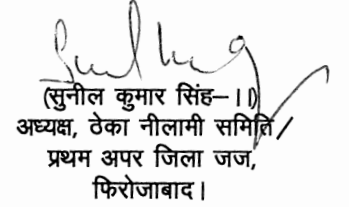 (सुनील कुमार सिंह–II)
अध्यक्ष, ठेका नीलामी समिति/
प्रथम अपर जिला जज,
फिरोजाबाद।